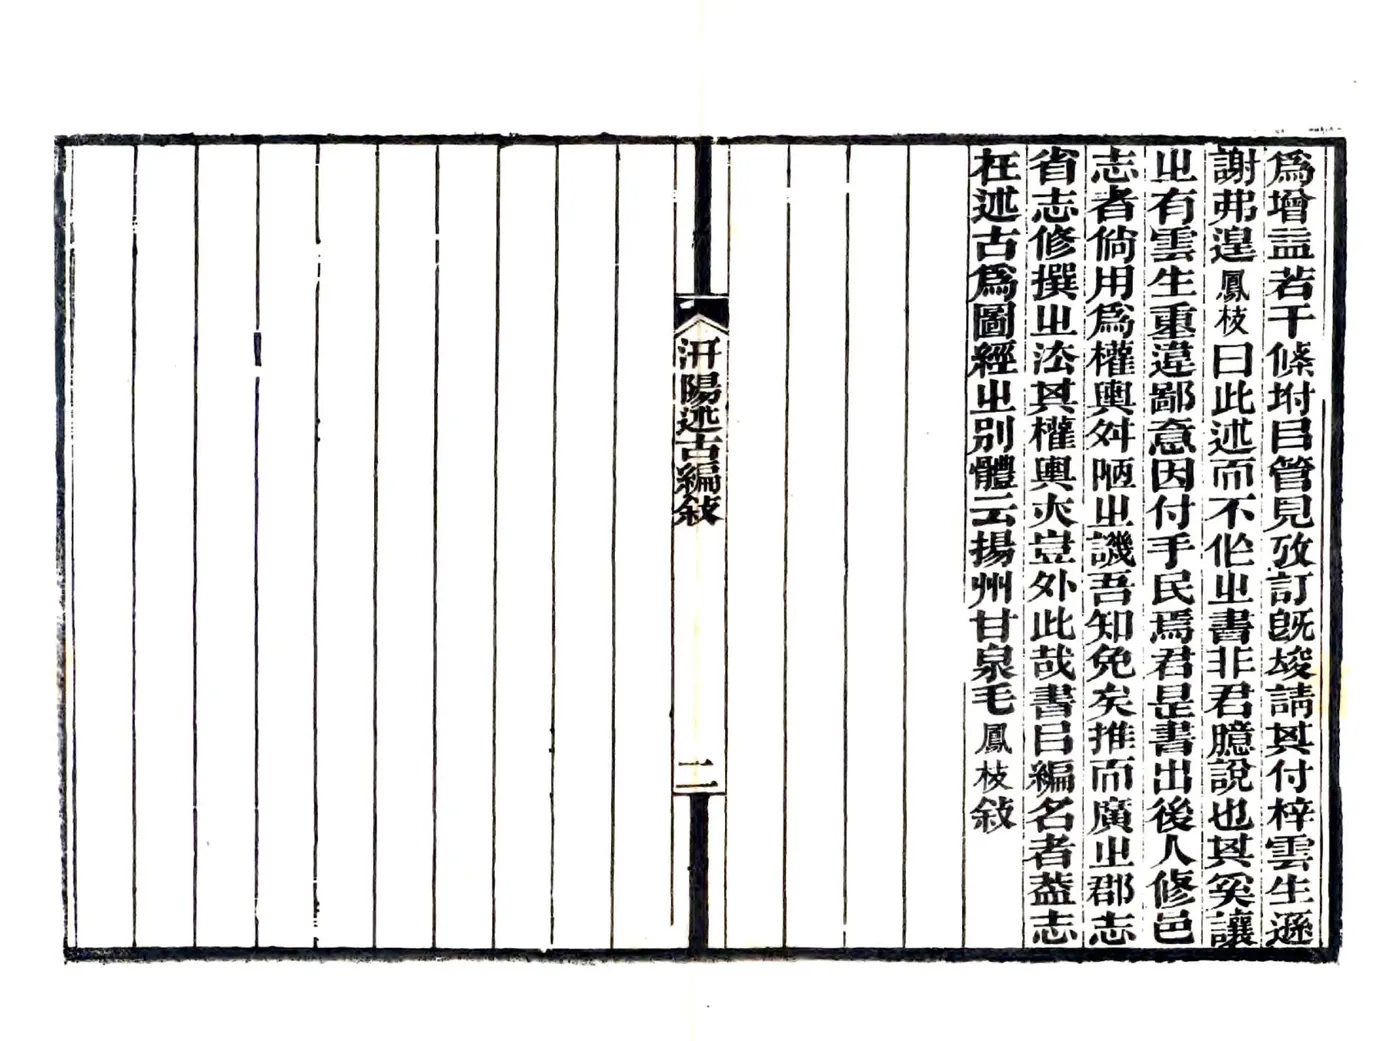 爲增益若干條坿㠯管見攷訂旣竣請其付梓雲生遜
謝弗遑鳳枝曰此述而不作㞢書非君臆說也其奚讓
㞢有雲生重違鄙意因付手民焉君是書出後人修邑
志者倘用爲權輿舛陋㞢譏吾知免矣推而廣㞢郡志
省志修撰㞢法其權輿亦豈外此哉書㠯編名者葢志
在述古爲圖經㞢別體云揚州甘泉毛鳳枝敍
汧陽述古編敍
二